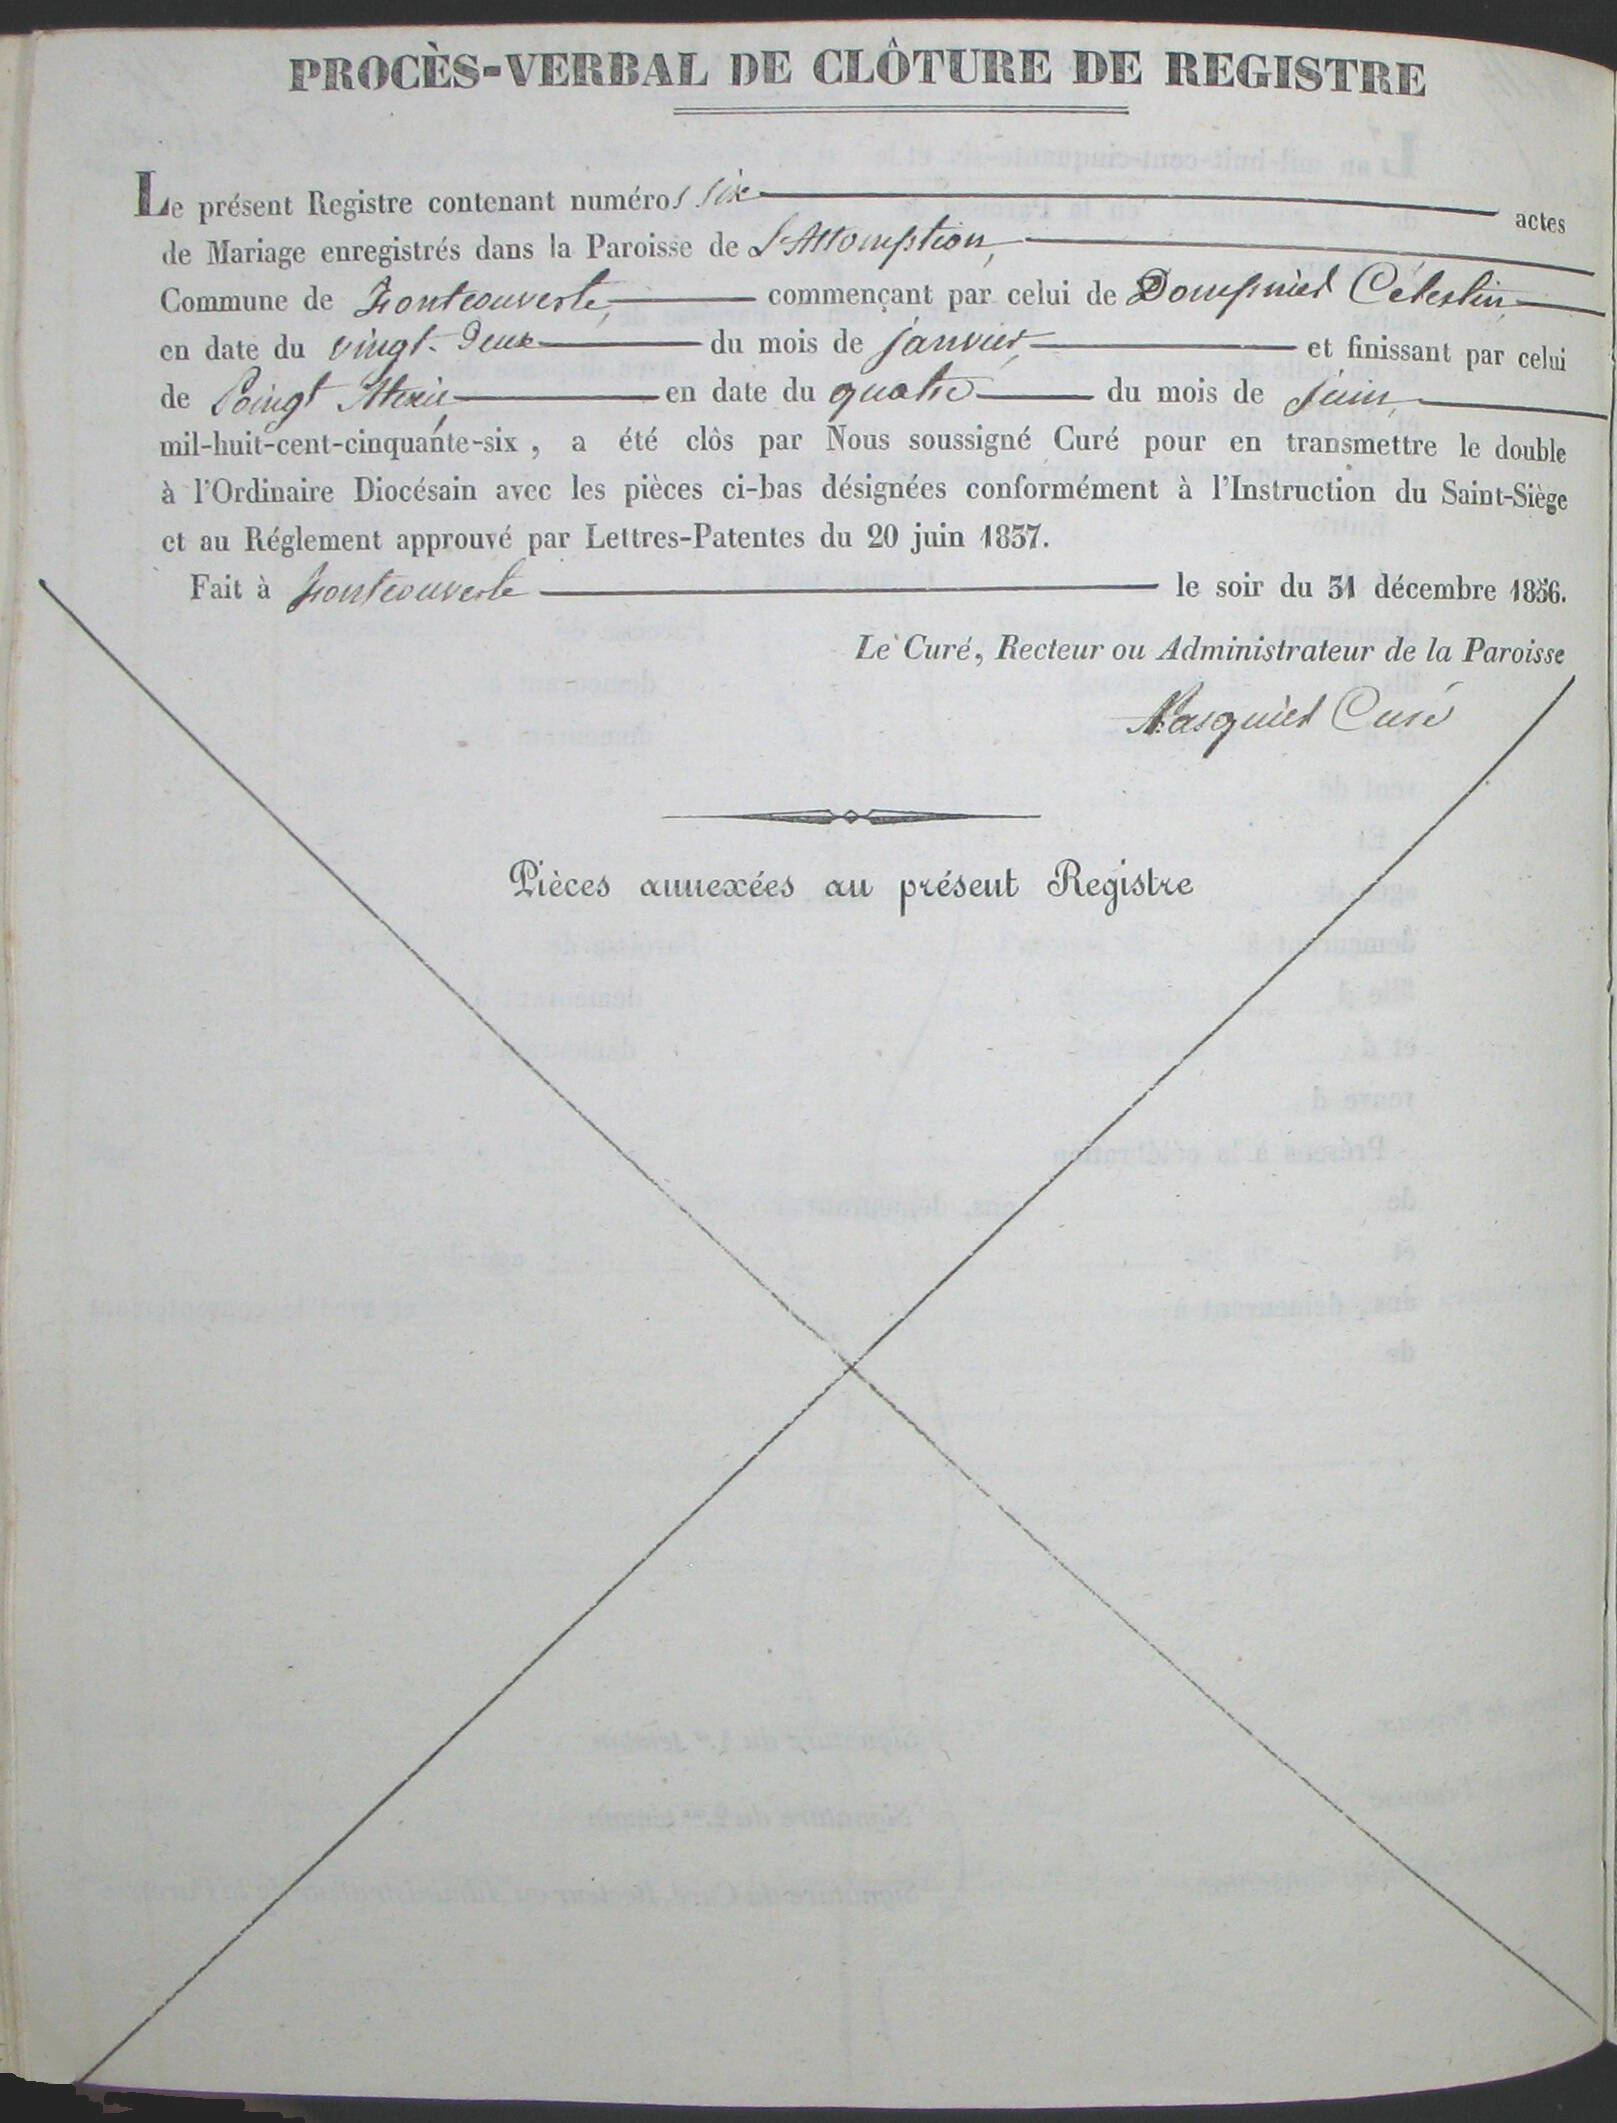 PROCÈS-VERBAL DE CLÔTURE DE REGISTRE
Le présent Registre contenant numéros six actes
de Mariage enregistrés dans la Paroisse de l'Assomption,
Commune de Fontcouverte, commençant par celui de Dompnier Célestin
en date du vingt-deux du mois de janvier, et finissant par celui
de Poingt Alexis, en date du quatre du mois de juin,
mil-huit-cent-cinquante-six, a été clòs par Nous soussigné Curé pour en transmettre le double
à l'Ordinaire Diocésain avec les pièces ci-bas désignées conformément à l'Instruction du Saint-Siège
et au Réglement approuvé par Lettres-Patentes du 20 juin 1837.
Fait à Fontcouverte le soir du 31 décembre 1856.
Le Curé, Recteur ou Administrateur de la Paroisse
Curé
Pièces annexées au présent Registre